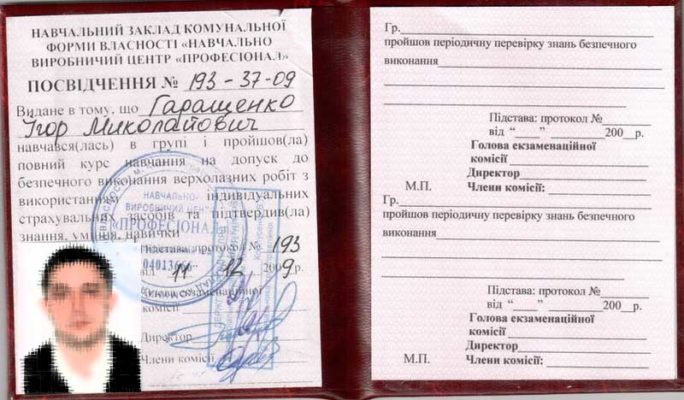 НАВЧАЛЬНИЙ ЗАКЛАД КОМУНАЛЬНОЇ
ФОРМИ ВЛАСНОСТІ «НАВЧАЛЬНО
ВИРОБНИЧИЙ ЦЕНТР «ПРОФЕСІОНАЛ»
ПОСВІДЧЕННЯ № 193-37-09
Видане в тому, що Гаращенко
Ігор Миколайович
навчався(лась) в групі і пройшов(ла)
повний курс навчання на допуск до
безпечного виконання верхолазних робіт з
використанням індивідуальних
страхувальних засобів та підтвердив(ла)
знання, уміння, навички
Підстава: протокол № 193
від 11 12 2009р.
Голова екзаменаційної
комісії
Директор
Члени комісії
НАВЧАЛЬНО-
ВИРОБНИЧИЙ ЦЕНТР
«ПРОФЕСІОНАЛ»
04013666
Гр.
пройшов періодичну перевірку знань безпечного
виконання
Підстава: протокол №
від "___" ________ 200__р.
Голова екзаменаційної
комісії
Директор
М.П. Члени комісії:
Гр.
пройшов періодичну перевірку знань безпечного
виконання
Підстава: протокол №
від "___" ________ 200__р.
Голова екзаменаційної
комісії
Директор
М.П. Члени комісії: